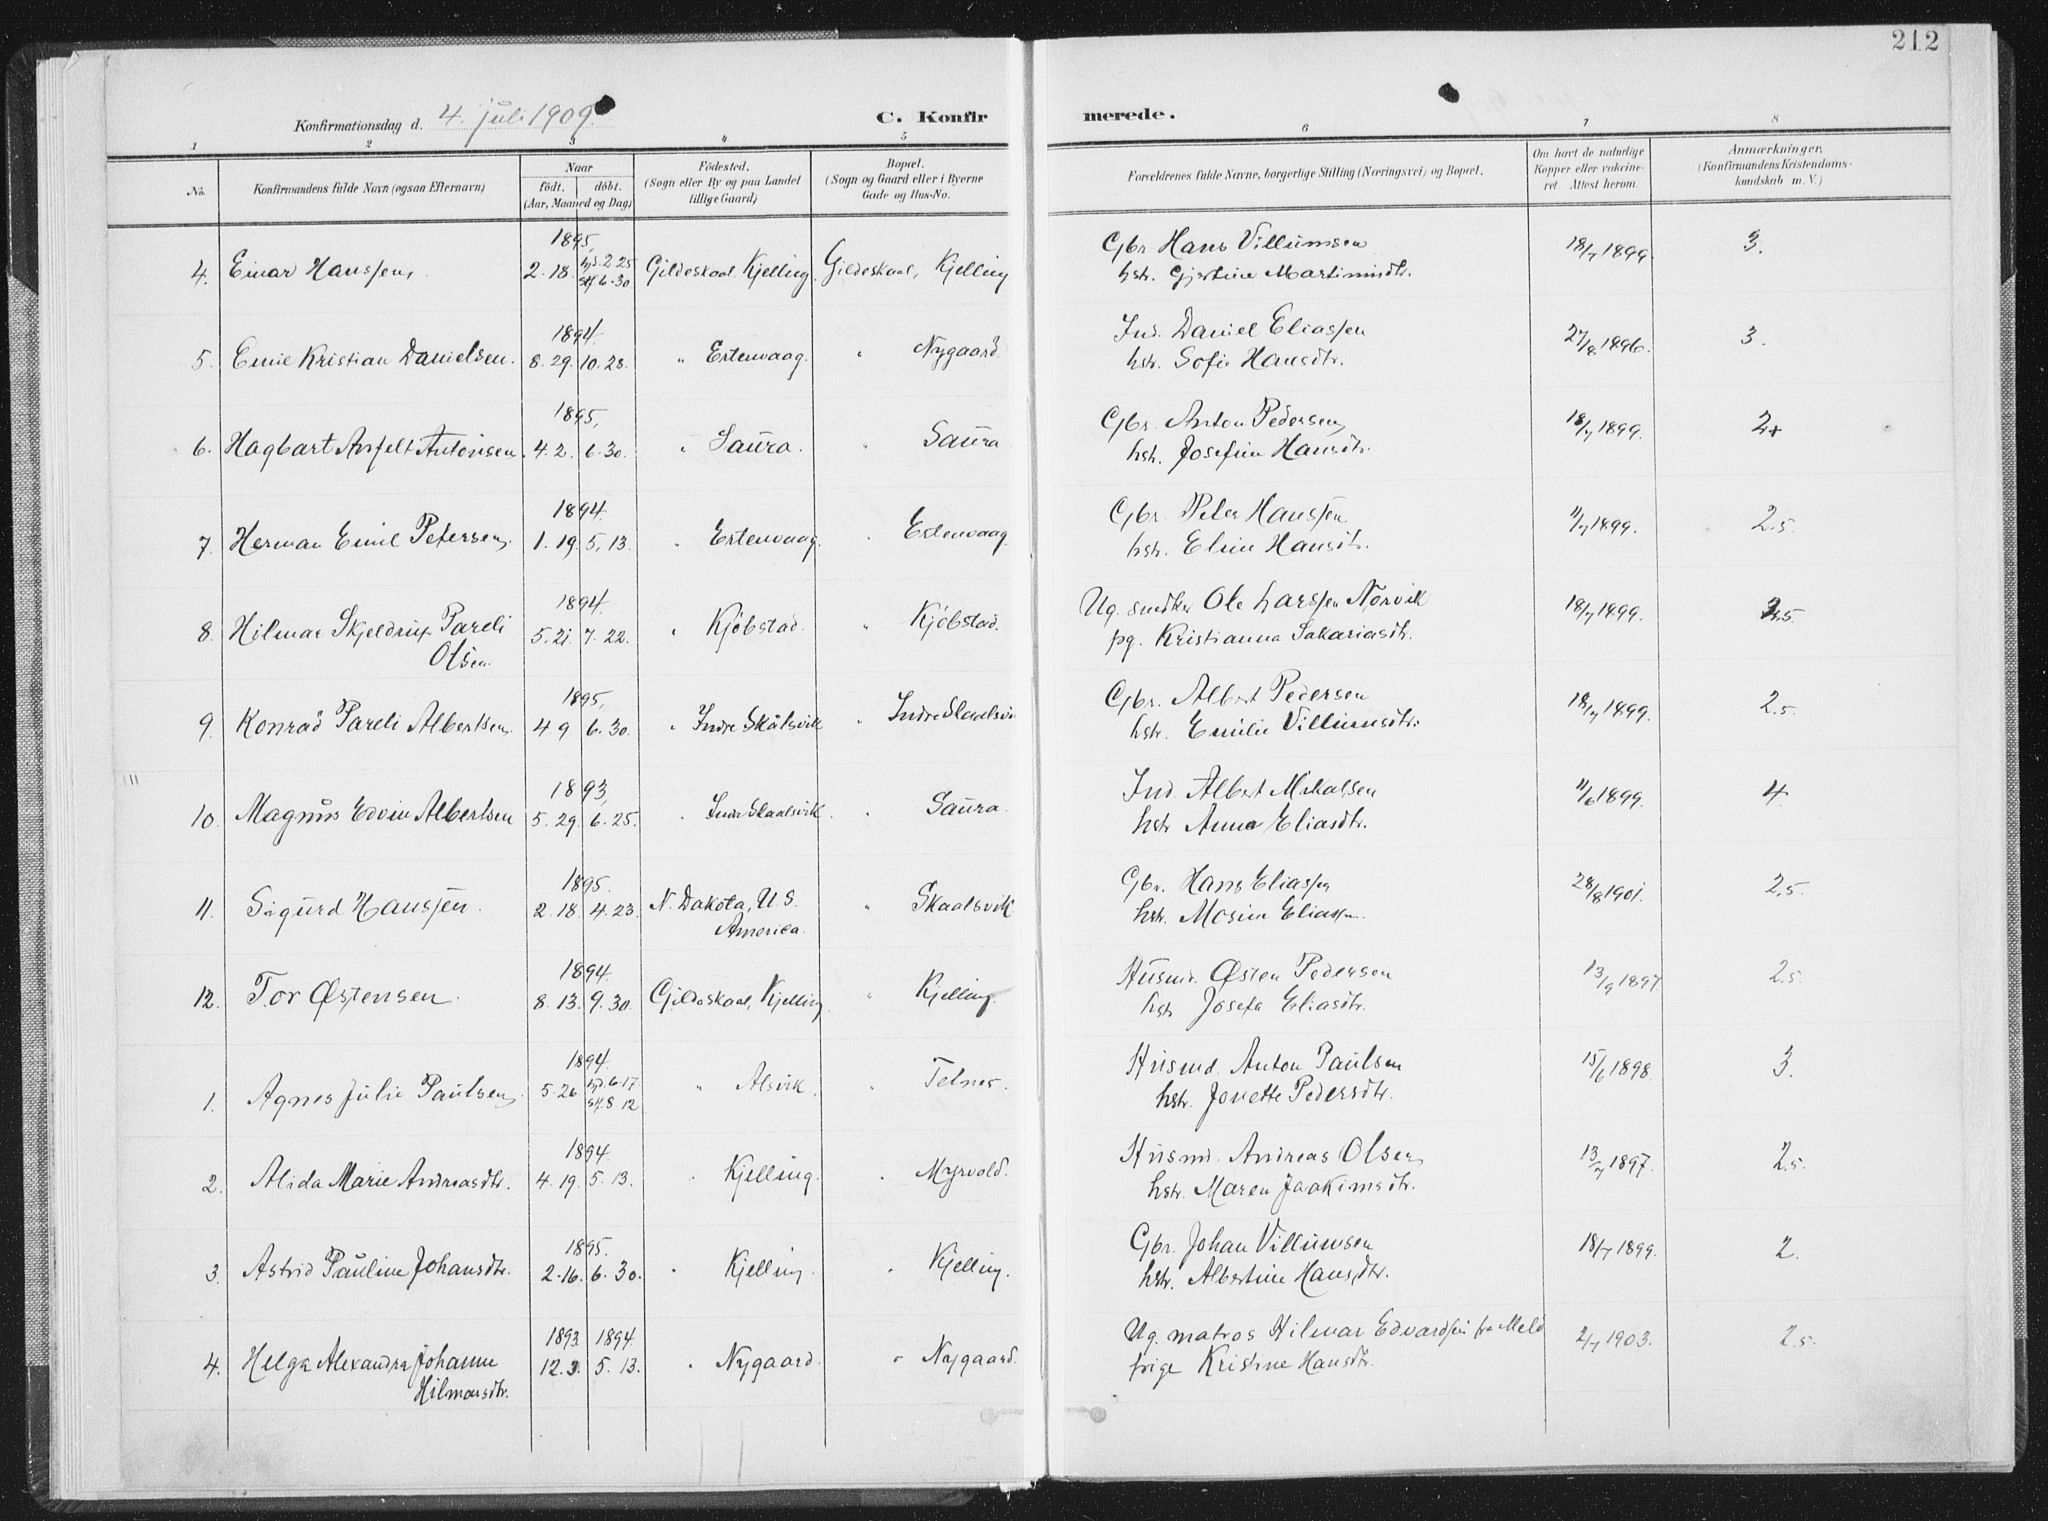 212
Konfirmationsdag d. 4. juli 1909.
C. Konfirmerede.
1 2 3 4 5 6 7 8
No.
Konfirmandens fulde Navn (ogsaa Efternavn)
Naar
födt. döbt.
(Aar, Maaned og Dag)
Födested.
(Sogn eller By og paa Landet
tillige Gaard)
Bopæl.
(Sogn og Gaard eller i Byerne
Gade og Hus-No.
Forældrenes fulde Navne, borgerlige Stilling (Næringsvei) og Bopæl.
Om havt de naturlige
Kopper eller vakcine-
ret Attest herom.
Anmærkninger.
(Konfirmandens Kristendoms-
kundskab m. V.)
1895,
4. Einar Hanssen. 2.18. hjd. 2.25 stf. 6.30 Gildeskaal. Kjelling. Gildeskaal, Kjelling
Gbr. Hans Villumsen 18/7 1899. 3.
hstr. Gjertine Martinusdtr.
1894.
5. Emil Kristian Danielsen. 8.29. 10.28. " Ertenvaag. " Nygaard.
Ind. Daniel Eliassen 27/8 1896. 3.
hstr. Sofie Hansdtr.
1895,
6. Hagbart Anfelt Antonsen. 4.2. 6.30. " Saura. " Saura
Gbr. Anton Pedersen 18/7 1899. 2+
hstr. Josefine Hansdtr.
1894.
7. Herman Emil Petersen. 1.19. 5.13. " Ertenvaag. " Ertenvaag.
Gbr. Peter Hanssen 11/7 1899. 2.5.
hstr. Eline Hansdtr.
1894.
8. Hilmar Skjeldrup Pareli 5.21. 7.22. " Kjöbstad. " Kjöbstad.
Olsen.
Ug. snedker Ole Larssen Norvik 18/7 1899.
pg. Kristianna Sakariasdtr.
1895,
9. Konrad Pareli Albertsen. 4 9 6.30. " Indre Skålsvik " Indre Skaalsvi
Gbr. Albert Pedersen 18/7 1899. 2.5.
hstr. Emilie Villumsdtr.
1893,
10. Magnus Edvin Albertsen 5.29. 6.25. " Indr Skaalsvik. " Saura.
Ind. Albert Mikalsen 11/6 1899. 4.
hstr. Anna Eliasdtr.
1895.
11. Sigurd Hanssen. 2.18. 4.23. N. Dakota, U.S. " Skaalsvik
America.
Gbr. Hans Eliassen 28/8 1901. 2.5.
hstr. Mosine Eliassen.
1894.
12. Tor Østensen. 8.13. 9.30. Gildeskaal, Kjelling. " Kjelling.
Husmd. Østen Pedersen 13/9 1897. 2.5.
hstr Josefa Eliasdtr.
1894.
1. Agnes Julie Paulsen. 5.26 hjd. 6.17 stf. 8 12 " Alsvik. " Telnes.
Husmd. Anton Paulsen 15/6 1898. 3.
hstr. Jonette Pedersdtr.
1894.
2. Alida Marie Andreasdtr. 4.19. 5.13. " Kjelling. " Myrvold.
Husmd. Andreas Olsen 13/7 1897. 2.5.
hstr. Maren Joakimsdtr.
1895.
3. Astrid Pauline Johansdtr. 2.16. 6.30. " Kjelling. " Kjelling.
Gbr. Johan Villumsen 18/7 1899. 2.
hstr. Albertine Hansdtr.
1893 1894.
4. Helga Alexandra Johanne 12.3. 5.13. " Nygaard. " Nygaard.
Hilmarsdtr.
Ug. matros Hilmar Edvardsen fra Melø 2/7 1903. 2.5.
pige Kristine Hansdtr.